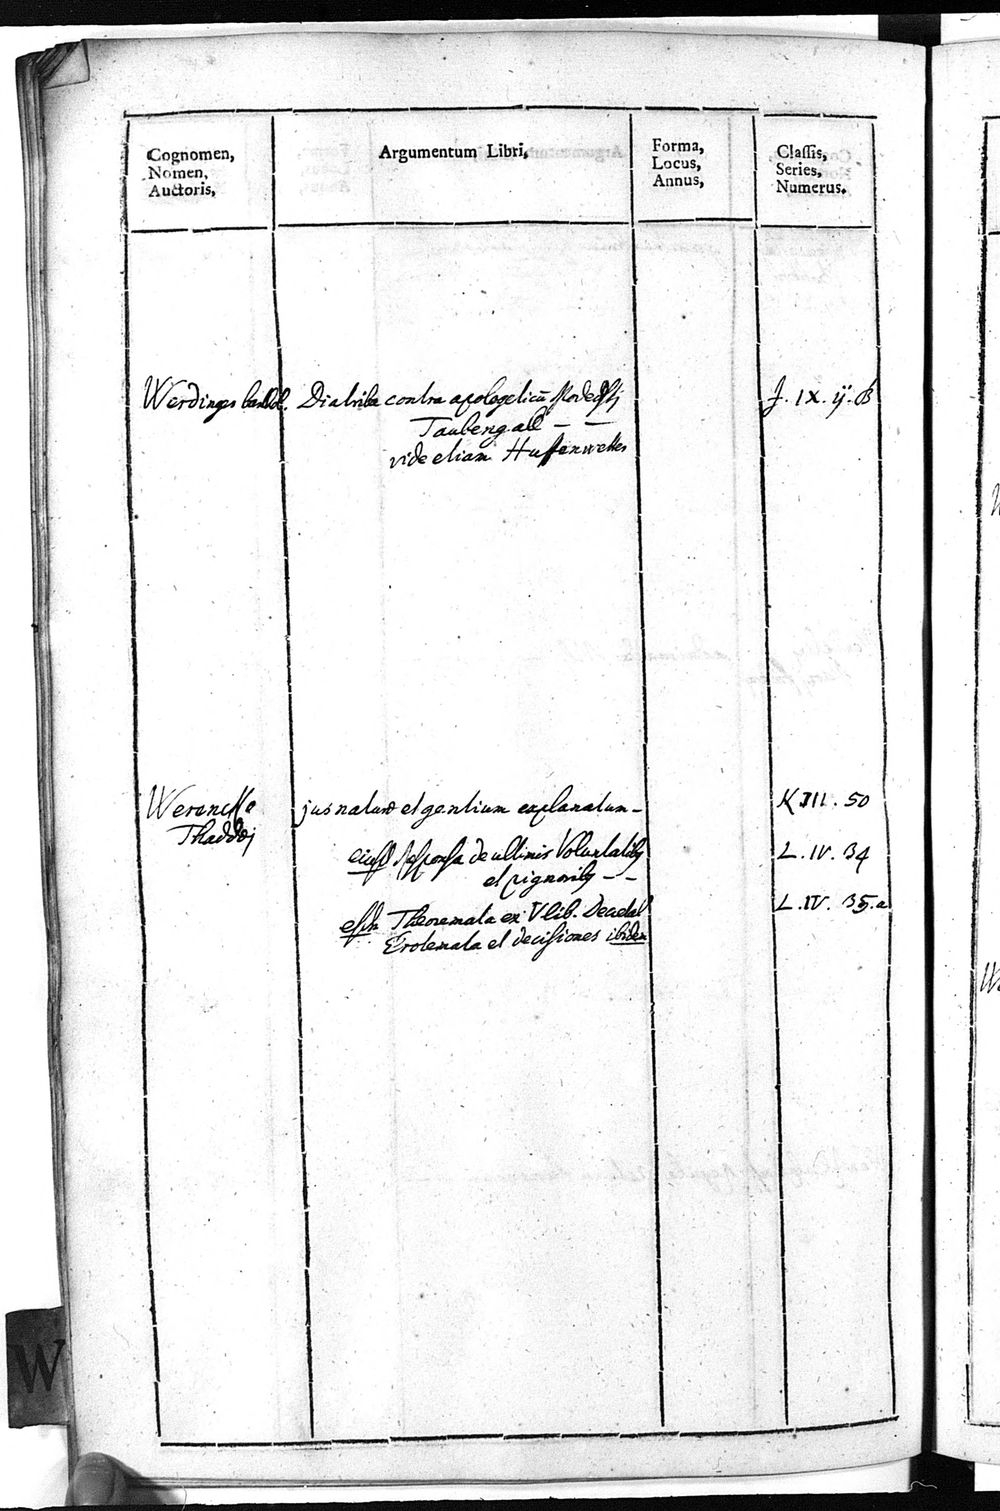 Cognomen,
Nomen,
Auctoris,
Argumentum Libri,
Forma,
Locus,
Annus,
Classis,
Series,
Numerus.
Diatriba contra apologeticū Modesti
Taubengall — —
vide etiam
J. IX. ij. B
Thaddæi
jus naturæ et gentium explanatum –
K III. 50
eiusd Responsa de ultimis Voluntatibq
et pignoribq – –
L. IV. 34
Theoremata ex V lib. Decretal
Erotemata et decisiones ibidem
L. IV. 35. a
W